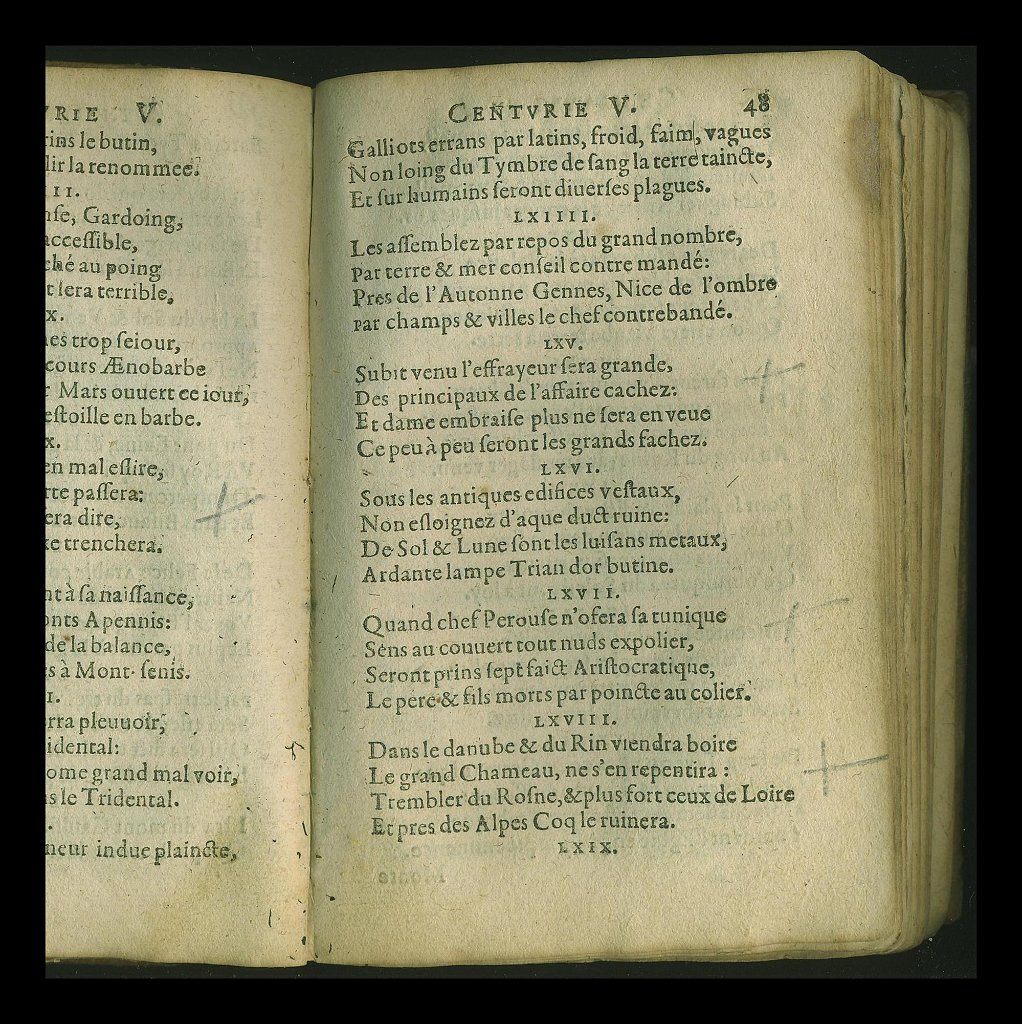 V.
le butin,
la renommee.
II.
Gardoing,
accessible,
au poing
sera terrible,
X.
trop seiour,
cours Ænobarbe
Mars ouuert ce iour,
estoille en barbe.
X.
en mal eslire,
passera:
dire,
trenchera.
à sa naissance,
Apennis:
de la balance,
à Mont-senis.
I.
pleuuoir,
grand mal voir,
le Tridental.
indue plaincte,
CENTVRIE V. 48
Galliots errans par latins, froid, faim, vagues
Non loing du Tymbre de sang la terre taincte,
Et sur humains seront diuerses plagues.
LXIIII.
Les assemblez par repos du grand nombre,
Par terre & mer conseil contre mandé:
Pres de l'Autonne Gennes, Nice de l'ombre
Par champs & villes le chef contrebandé.
LXV.
Subit venu l'effrayeur sera grande,
Des principaux de l'affaire cachez:
Et dame embraise plus ne sera en veue
Ce peu à peu seront les grands fachez.
LXVI.
Sous les antiques edifices vestaux,
Non esloignez d'aque duct ruine:
De Sol & Lune sont les luisans metaux,
Ardante lampe Trian dor butine.
LXVII.
Quand chef Perouse n'osera sa tunique
Sens au couuert tout nuds expolier,
Seront prins sept faict Aristocratique,
Le pere & fils morts par poincte au colier.
LXVIII.
Dans le danube & du Rin viendra boire
Le grand Chameau, ne s'en repentira :
Trembler du Rosne, & plus fort ceux de Loire
Et pres des Alpes Coq le ruinera.
LXIX.